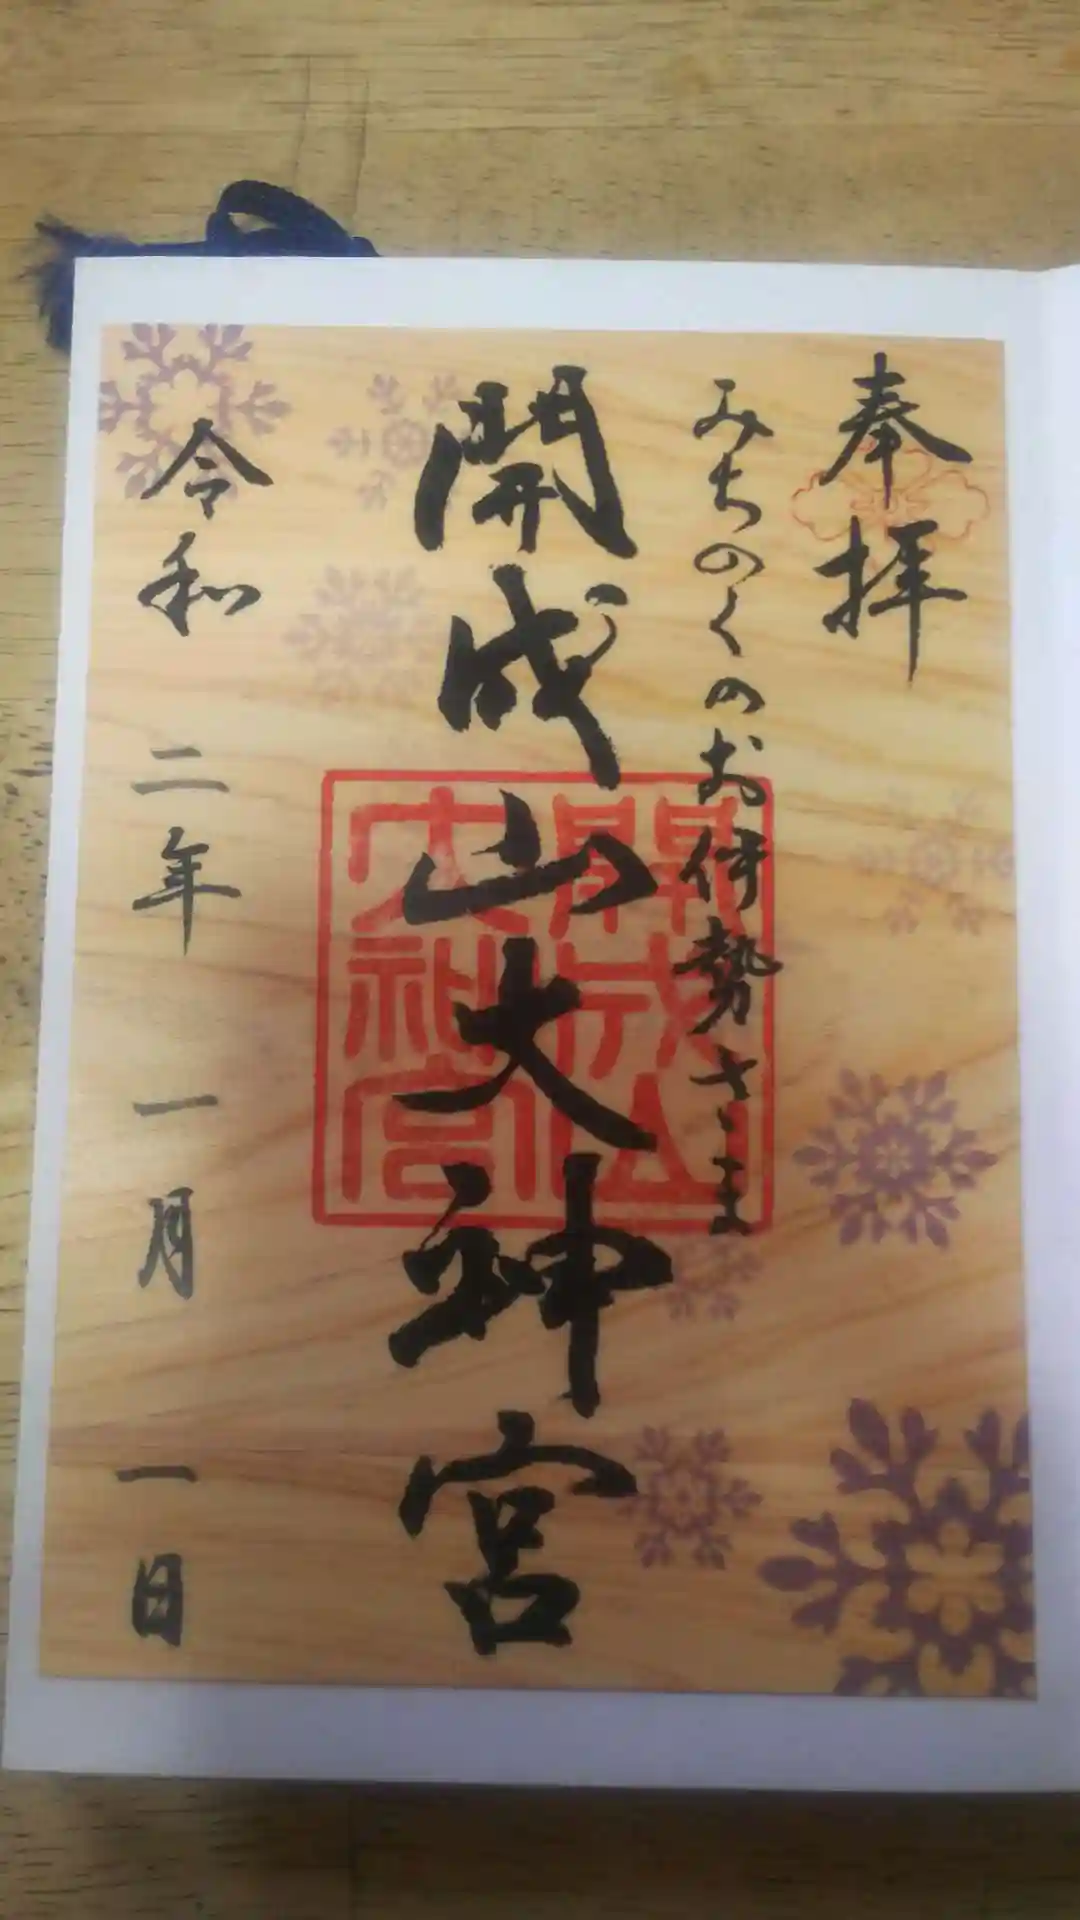 奉拝
みちのくのお伊勢さま
開成山大神宮
開成山
大神宮
令和二年一月一日